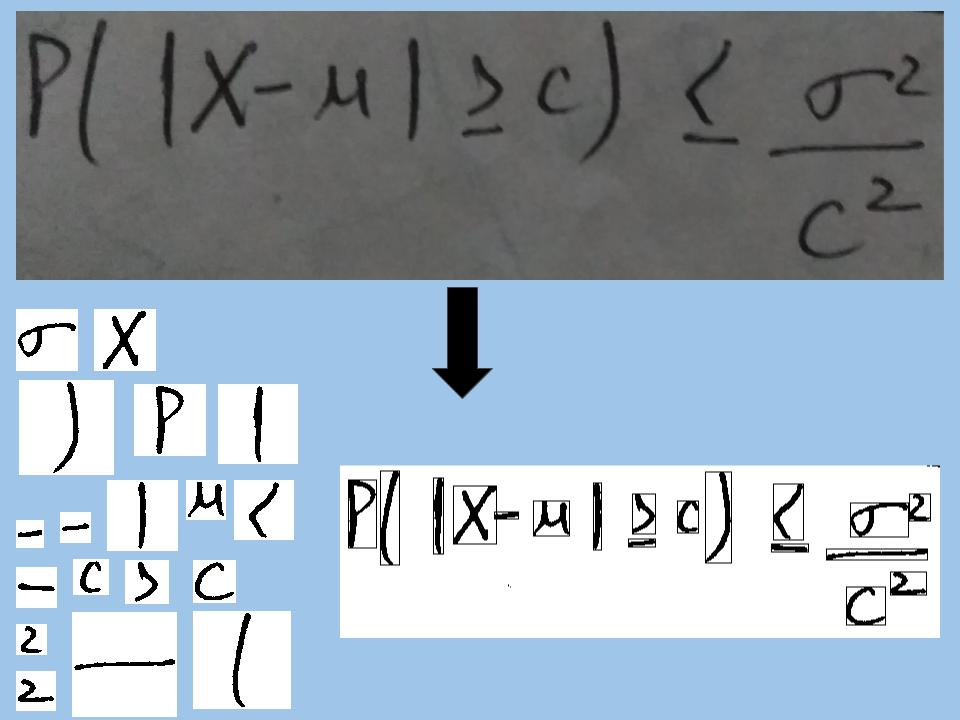 P(|X-μ|≥c) ≤ σ²/c²
σ X
) P |
- - | μ <
- c > c
2 — (
2
P(|X-μ|≥c) ≤ σ²/c²